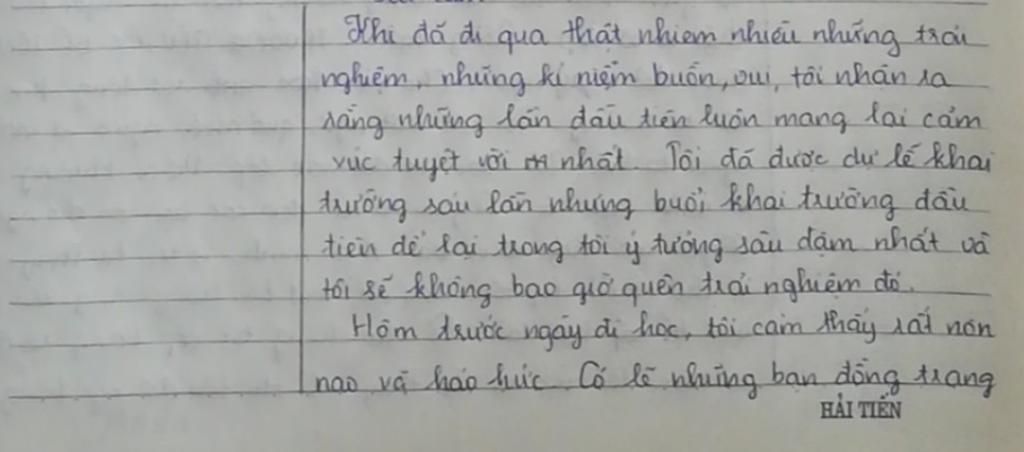 Khi đã đi qua thật nhiem nhiều những trải
nghiệm, những kỉ niệm buồn, vui, tôi nhận ra
rằng những lần đầu tiên luôn mang lại cảm
xúc tuyệt vời nhất. Tôi đã được dự lễ khai
trường sáu lần nhưng buổi khai trường đầu
tiên để lại trong tôi ý tưởng sâu đậm nhất và
tôi sẽ không bao giờ quên trải nghiệm đó.
Hôm trước ngày đi học, tôi cảm thấy rất nôn
nao và háo hức. Có lẽ những bạn đồng trang
HẢI TIẾN